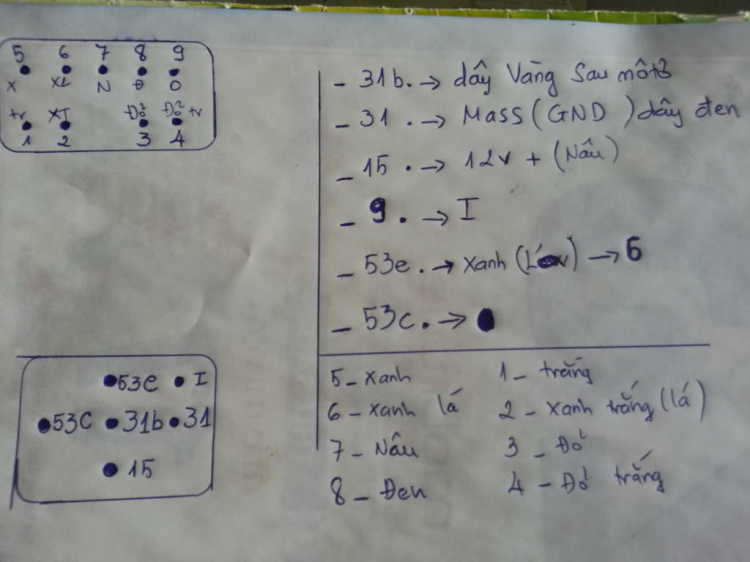 5 6 7 8 9
X XL N Đ O
tr XT Đỏ Đỏ tr
1 2 3 4
- 31b. → dây Vàng Sau môtơ
- 31. → Mass (GND) dây đen
- 15. → 12v + (Nâu)
- 9. → I
- 53e. → Xanh → 6
- 53c. →
53e I
53C 31b 31
15
5 - Xanh
6 - Xanh lá
7 - Nâu
8 - Đen
1 - trắng
2 - Xanh trắng (lá)
3 - Đỏ
4 - Đỏ trắng